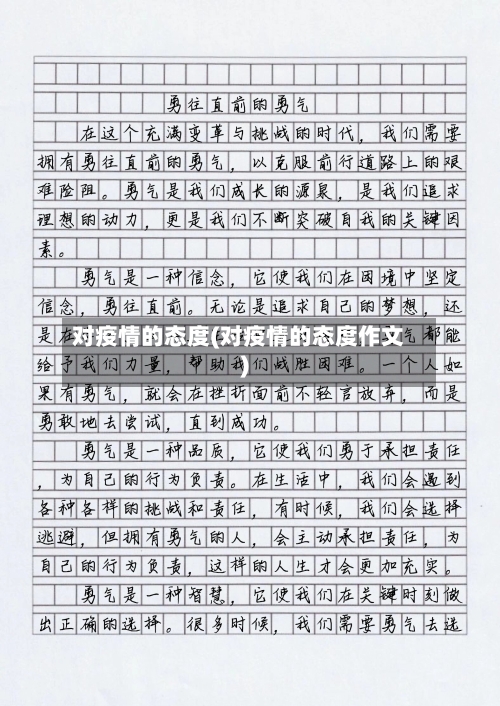 勇往直前的勇气
在这个充满变革与挑战的时代，我们需要
拥有勇往直前的勇气，以克服前行道路上的艰
难险阻。勇气是我们成长的源泉，是我们追求
理想的动力，更是我们不断突破自我的关键因
素。
勇气是一种信念，它使我们在困境中坚定
信念，勇往直前。无论是追求自己的梦想，还
对疫情的态度(对疫情的态度作文
)
是在
气都能
给予我们力量，帮助我们战胜困难。一个人如
果有勇气，就会在挫折面前不轻言放弃，而是
勇敢地去尝试，直到成功。
勇气是一种品质，它使我们勇于承担责任
，为自己的行为负责。在生活中，我们会遇到
各种各样的挑战和责任，有时候，我们会选择
逃避，但拥有勇气的人，会主动承担责任，为
自己的行为负责，这样的人生才会更加充实。
勇气是一种智慧，它使我们在关键时刻做
出正确的选择。很多时候，我们需要勇气去选